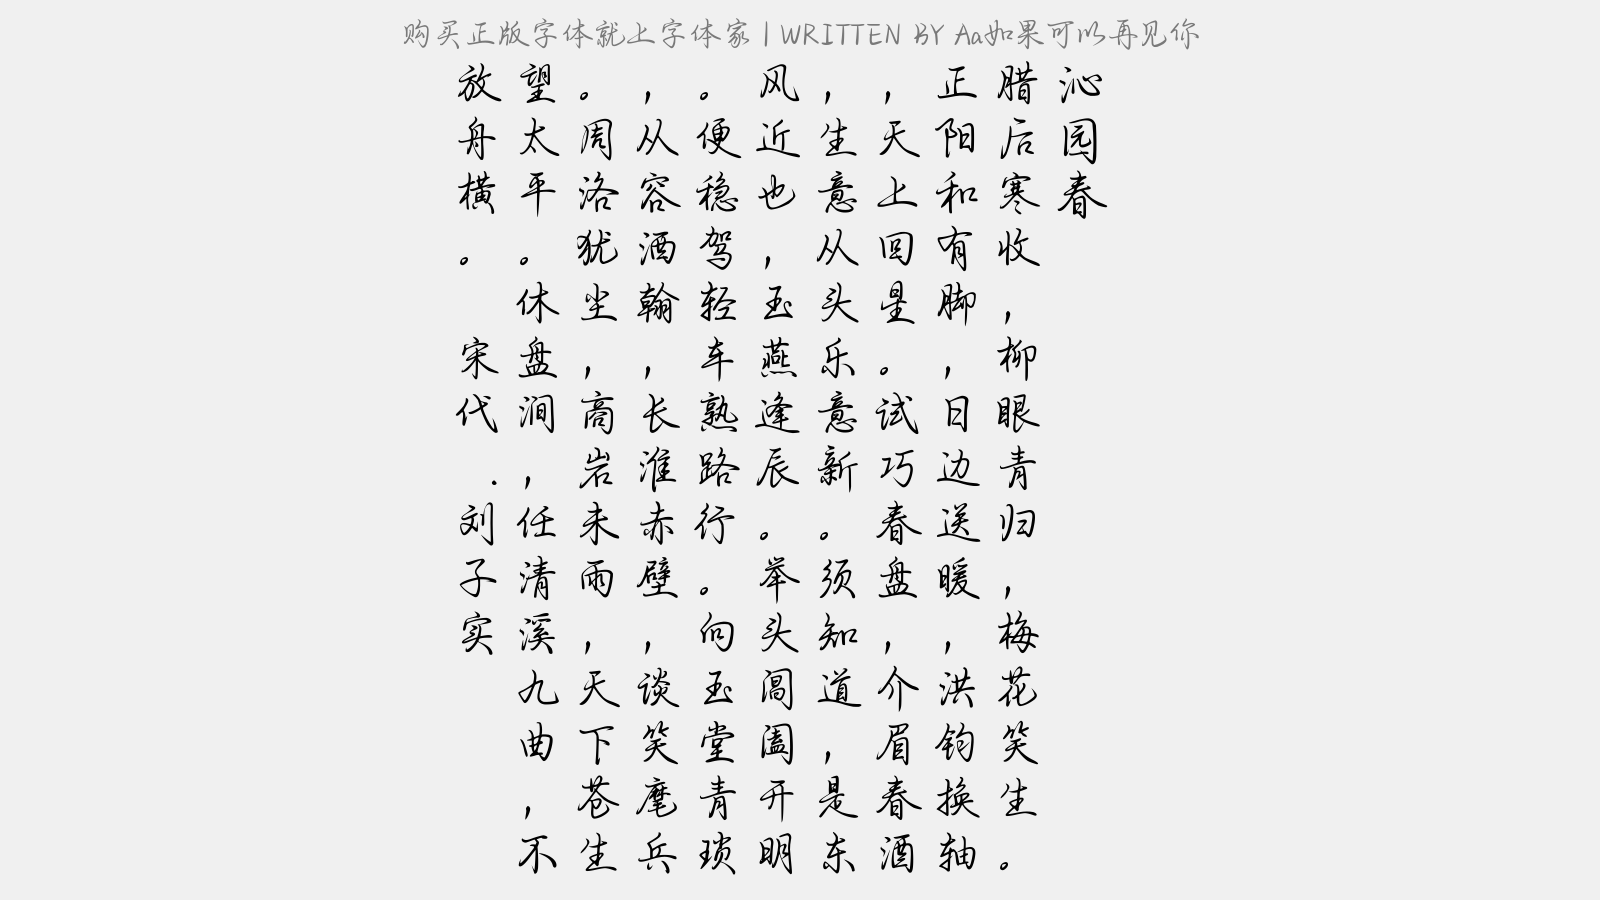 购买正版字体就上字体家 | WRITTEN BY Aa如果可以再见你
沁园春
腊后寒收，柳眼青归，梅花笑生。
正阳和有脚，日边送暖，洪钧换轴
，天上回星。试巧春盘，介眉春酒
，生意从头乐意新。须知道，是东
风近也，玉燕逢辰。举头阊阖开明
。便稳驾轻车熟路行。向玉堂青琐
，从容洒翰，长淮赤壁，谈笑麾兵
。周洛犹尘，高岩未雨，天下苍生
望太平。休盘涧，任清溪九曲，不
放舟横。 宋代.刘子实